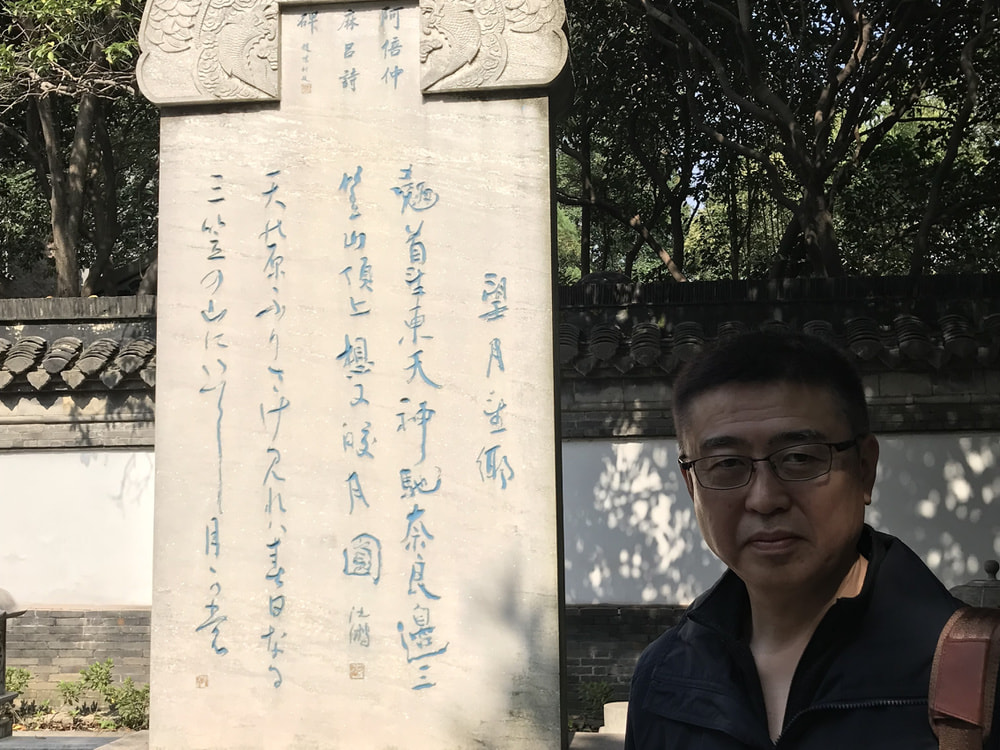 阿倍仲
麻呂詩
碑
望月望鄉
翹首望東天神馳奈良邊三
笠山頂上想又皎月圓
天の原ふりさけ見れば春日なる
三笠の山に
月